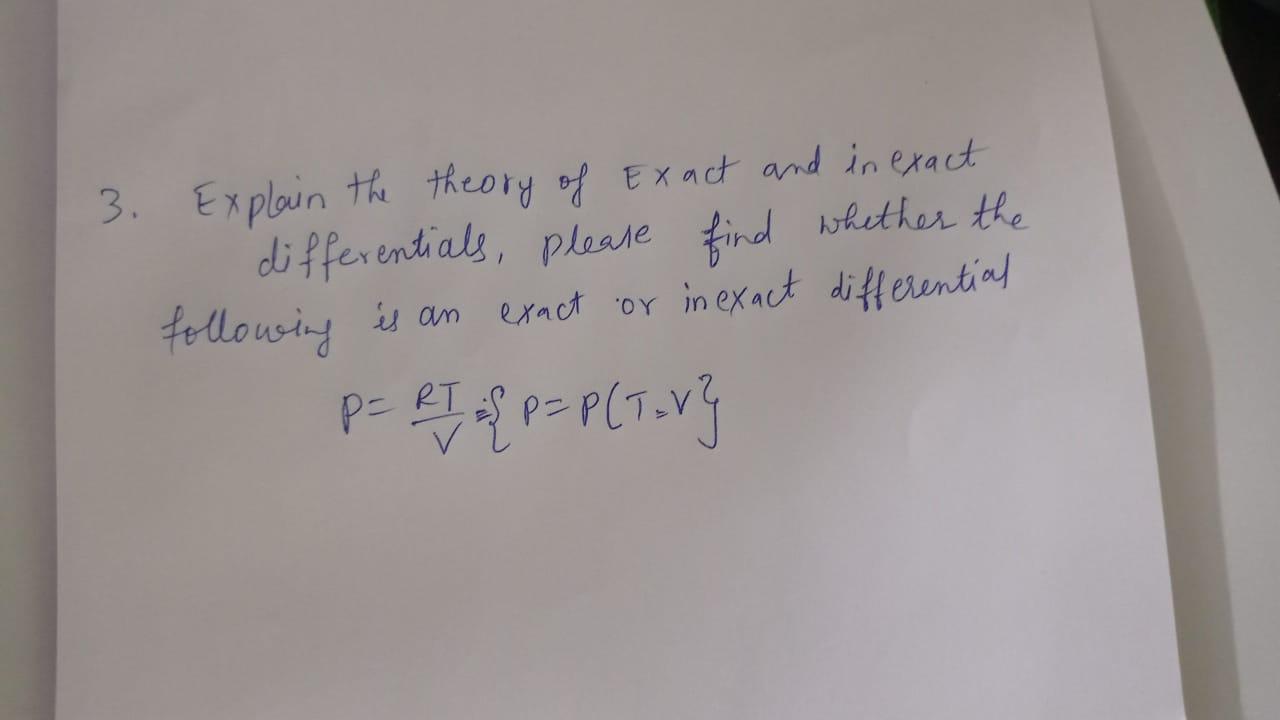 3. Explain the theory of Exact and inexact
differentials, please find whether the
following is an exact or inexact differential
P = RT/V = { P = P(T, V }